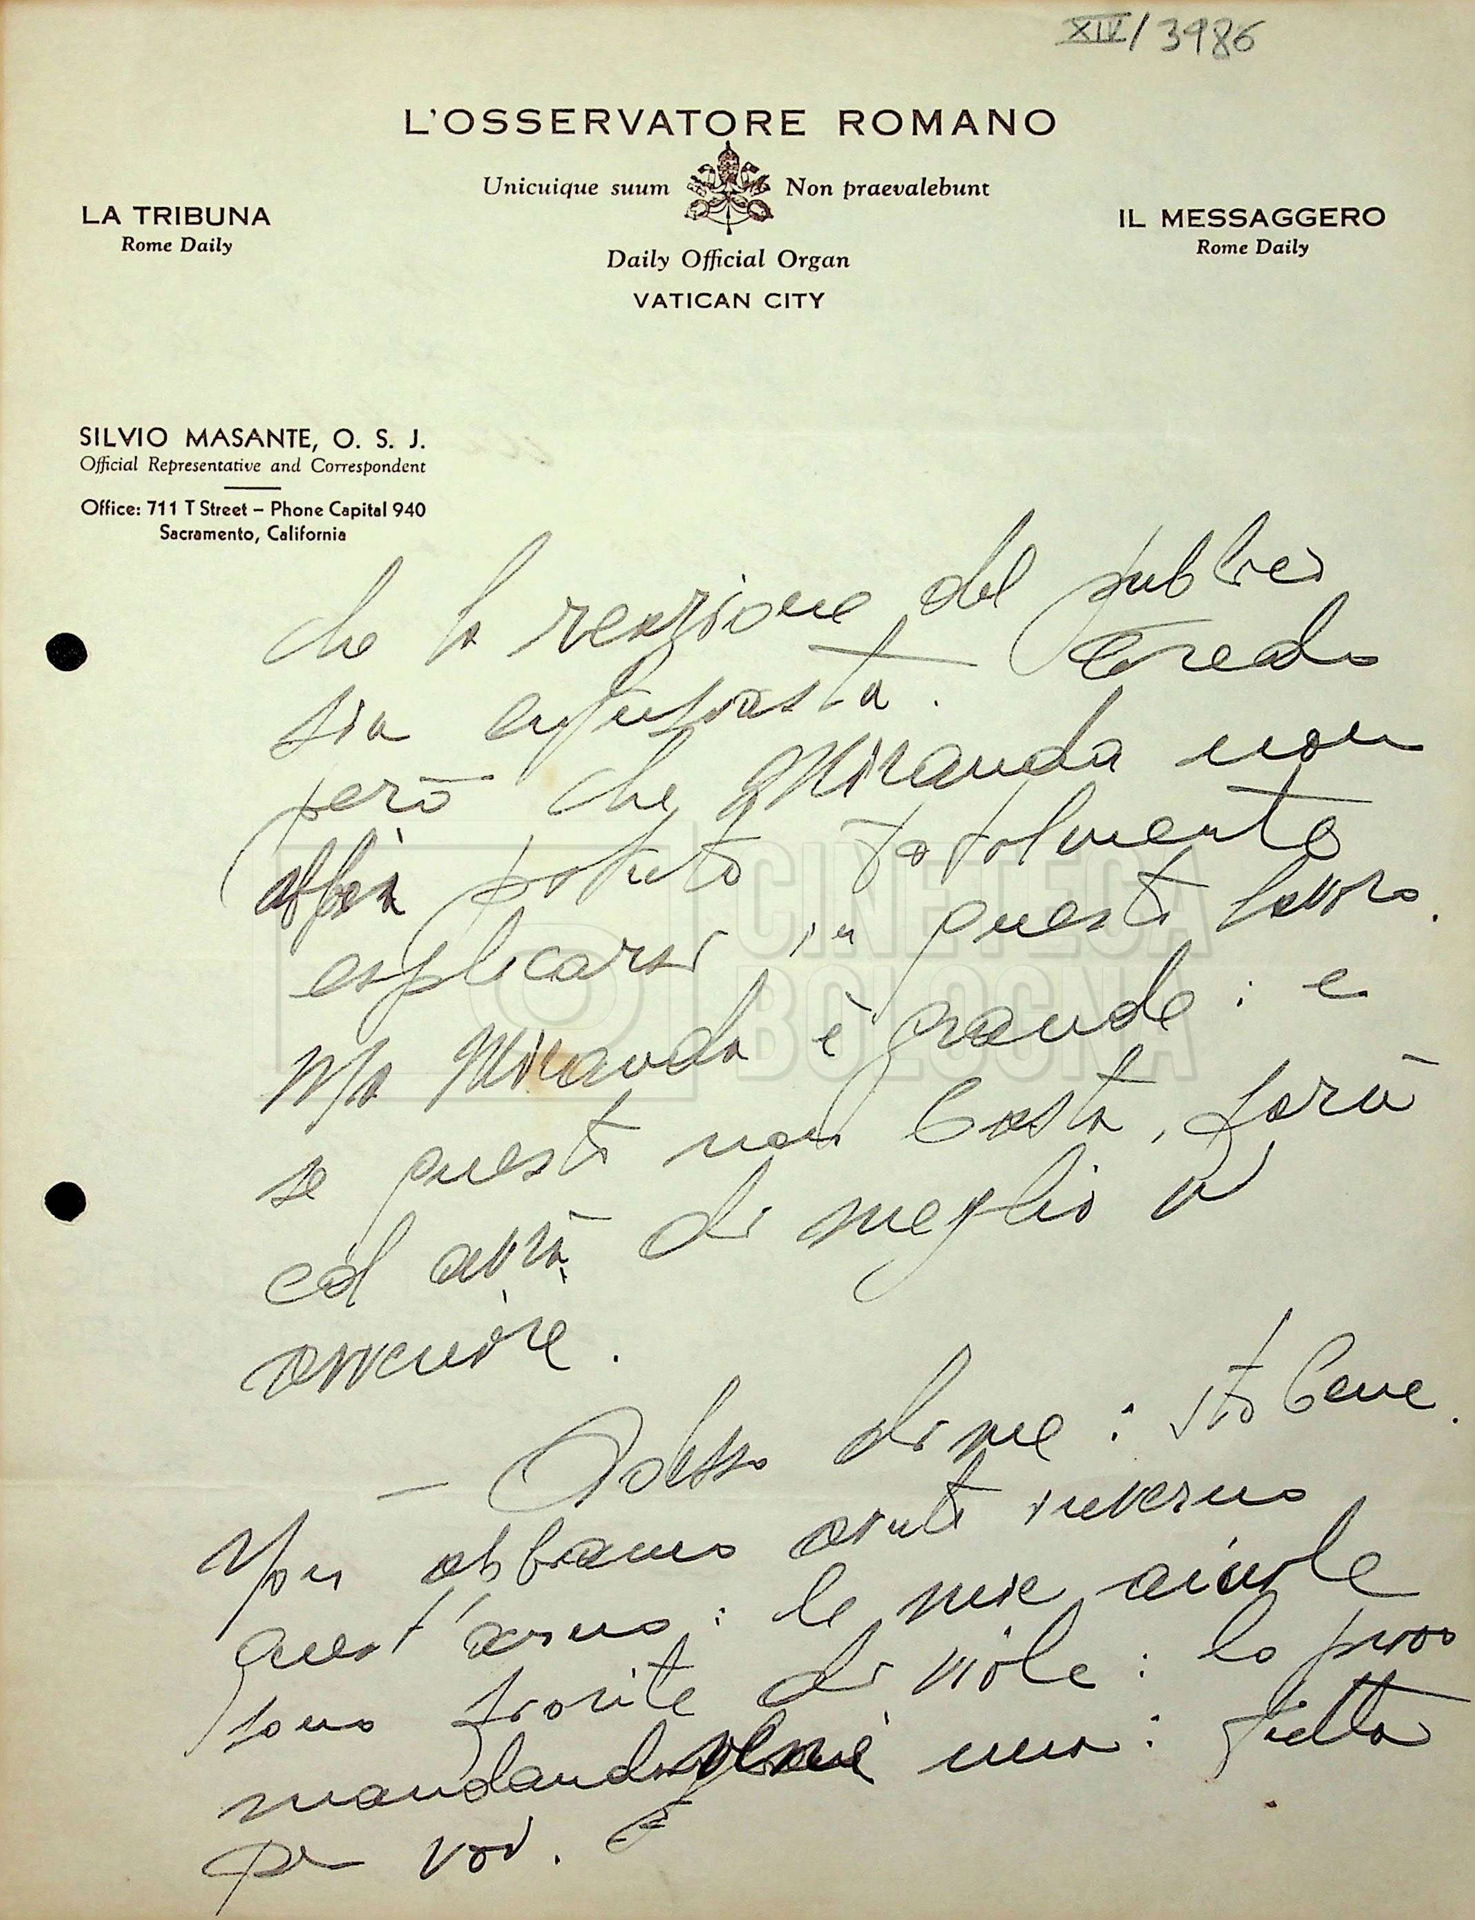 XIV/3986
L'OSSERVATORE ROMANO
Unicuique suum Non praevalebunt
LA TRIBUNA
Rome Daily
IL MESSAGGERO
Rome Daily
Daily Official Organ
VATICAN CITY
SILVIO MASANTE, O. S. J.
Official Representative and Correspondent
Office: 711 T Street – Phone Capital 940
Sacramento, California
che la reazione del publico
sia entusiasta. Credo
però che Miranda non
abbia potuto totalmente
esplicarsi in questo lavoro.
Ma Miranda è grande: e
se questo non basta, farà
ed avrà di meglio a
avvenire.
— Adesso di me: sto bene.
Non abbiamo avuto inverno
quest'anno: le mie aiuole
sono fiorite di viole: lo provo
mandandogliene una: fatta
per voi. E
CINETECA
BOLOGNA